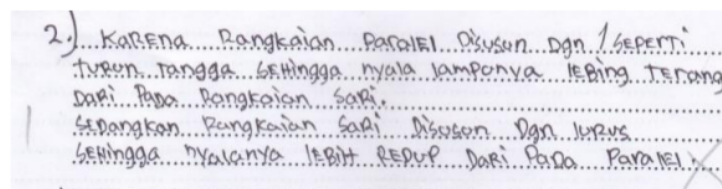 2.) KARENA Rangkaian PARAlEl Disusun Dgn / SEPERTi
turun tangga SEHingga nyala lampunya lEbing TErang
DARi PADA Rangkaian SARi.
SEDangkan Rangkaian SARi Disusun Dgn lurus
SEHingga nyalanya lEBiH REDUP DARi PADA PARAlEl.